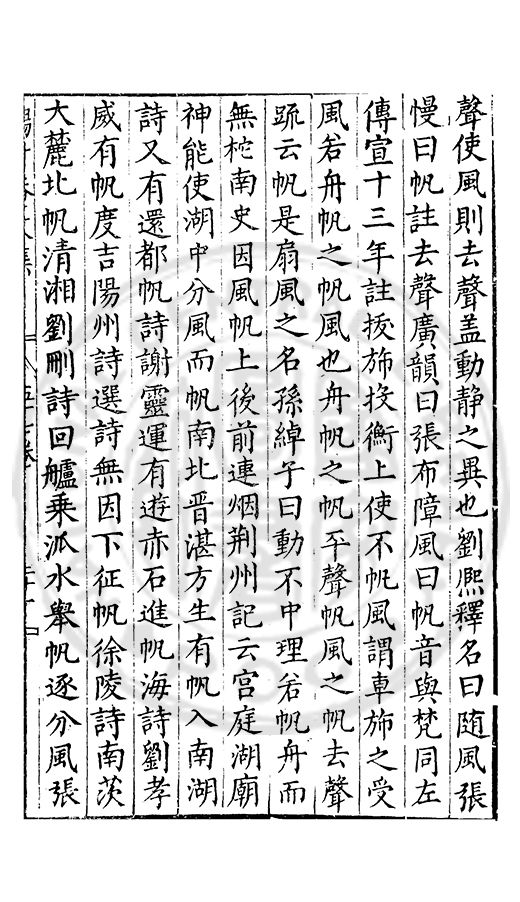 聲使風則去聲盖動静之異也劉熈釋名曰随風張
慢曰帆註去聲廣韻曰張布障風曰帆音與梵同左
傳宣十三年註㧞斾投衡上使不帆風謂車斾之受
風若舟帆之帆風也舟帆之帆平聲帆風之帆去聲
疏云帆是扇風之名孫綽子曰動不中理若帆舟而
無柁南史因風帆上後前連烟荆州記云宫庭湖廟
神能使湖中分風而帆南北晋湛方生有帆入南湖
詩又有還都帆詩謝靈運有遊赤石進帆海詩劉孝
威有帆度吉陽州詩選詩無因下征帆徐陵詩南茨
大麓北帆清湘劉刪詩回艫乗派水舉帆逐分風張